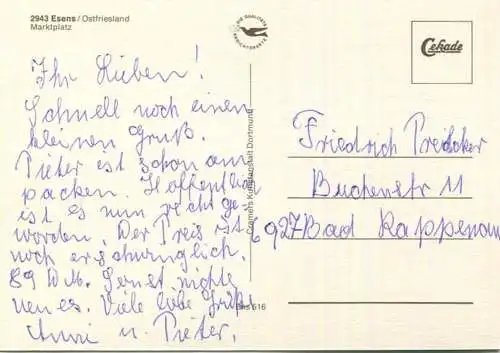 2943 Esens / Ostfriesland
Marktplatz
Ihr Lieben!
Schnell noch einen
kleinen Gruß.
Pieter ist schon am
packen. Hoffentlich
ist es nun recht ge-
worden. Der Preis ist
noch erschwinglich.
89 D.M. Sonst nichts
neues. Viele liebe Grüße
Anni u. Pieter.
Cramers Kunstanstalt Dortmund
516
Cekade
Friedrich
Buchenstr 11
6927 Bad Rappenau